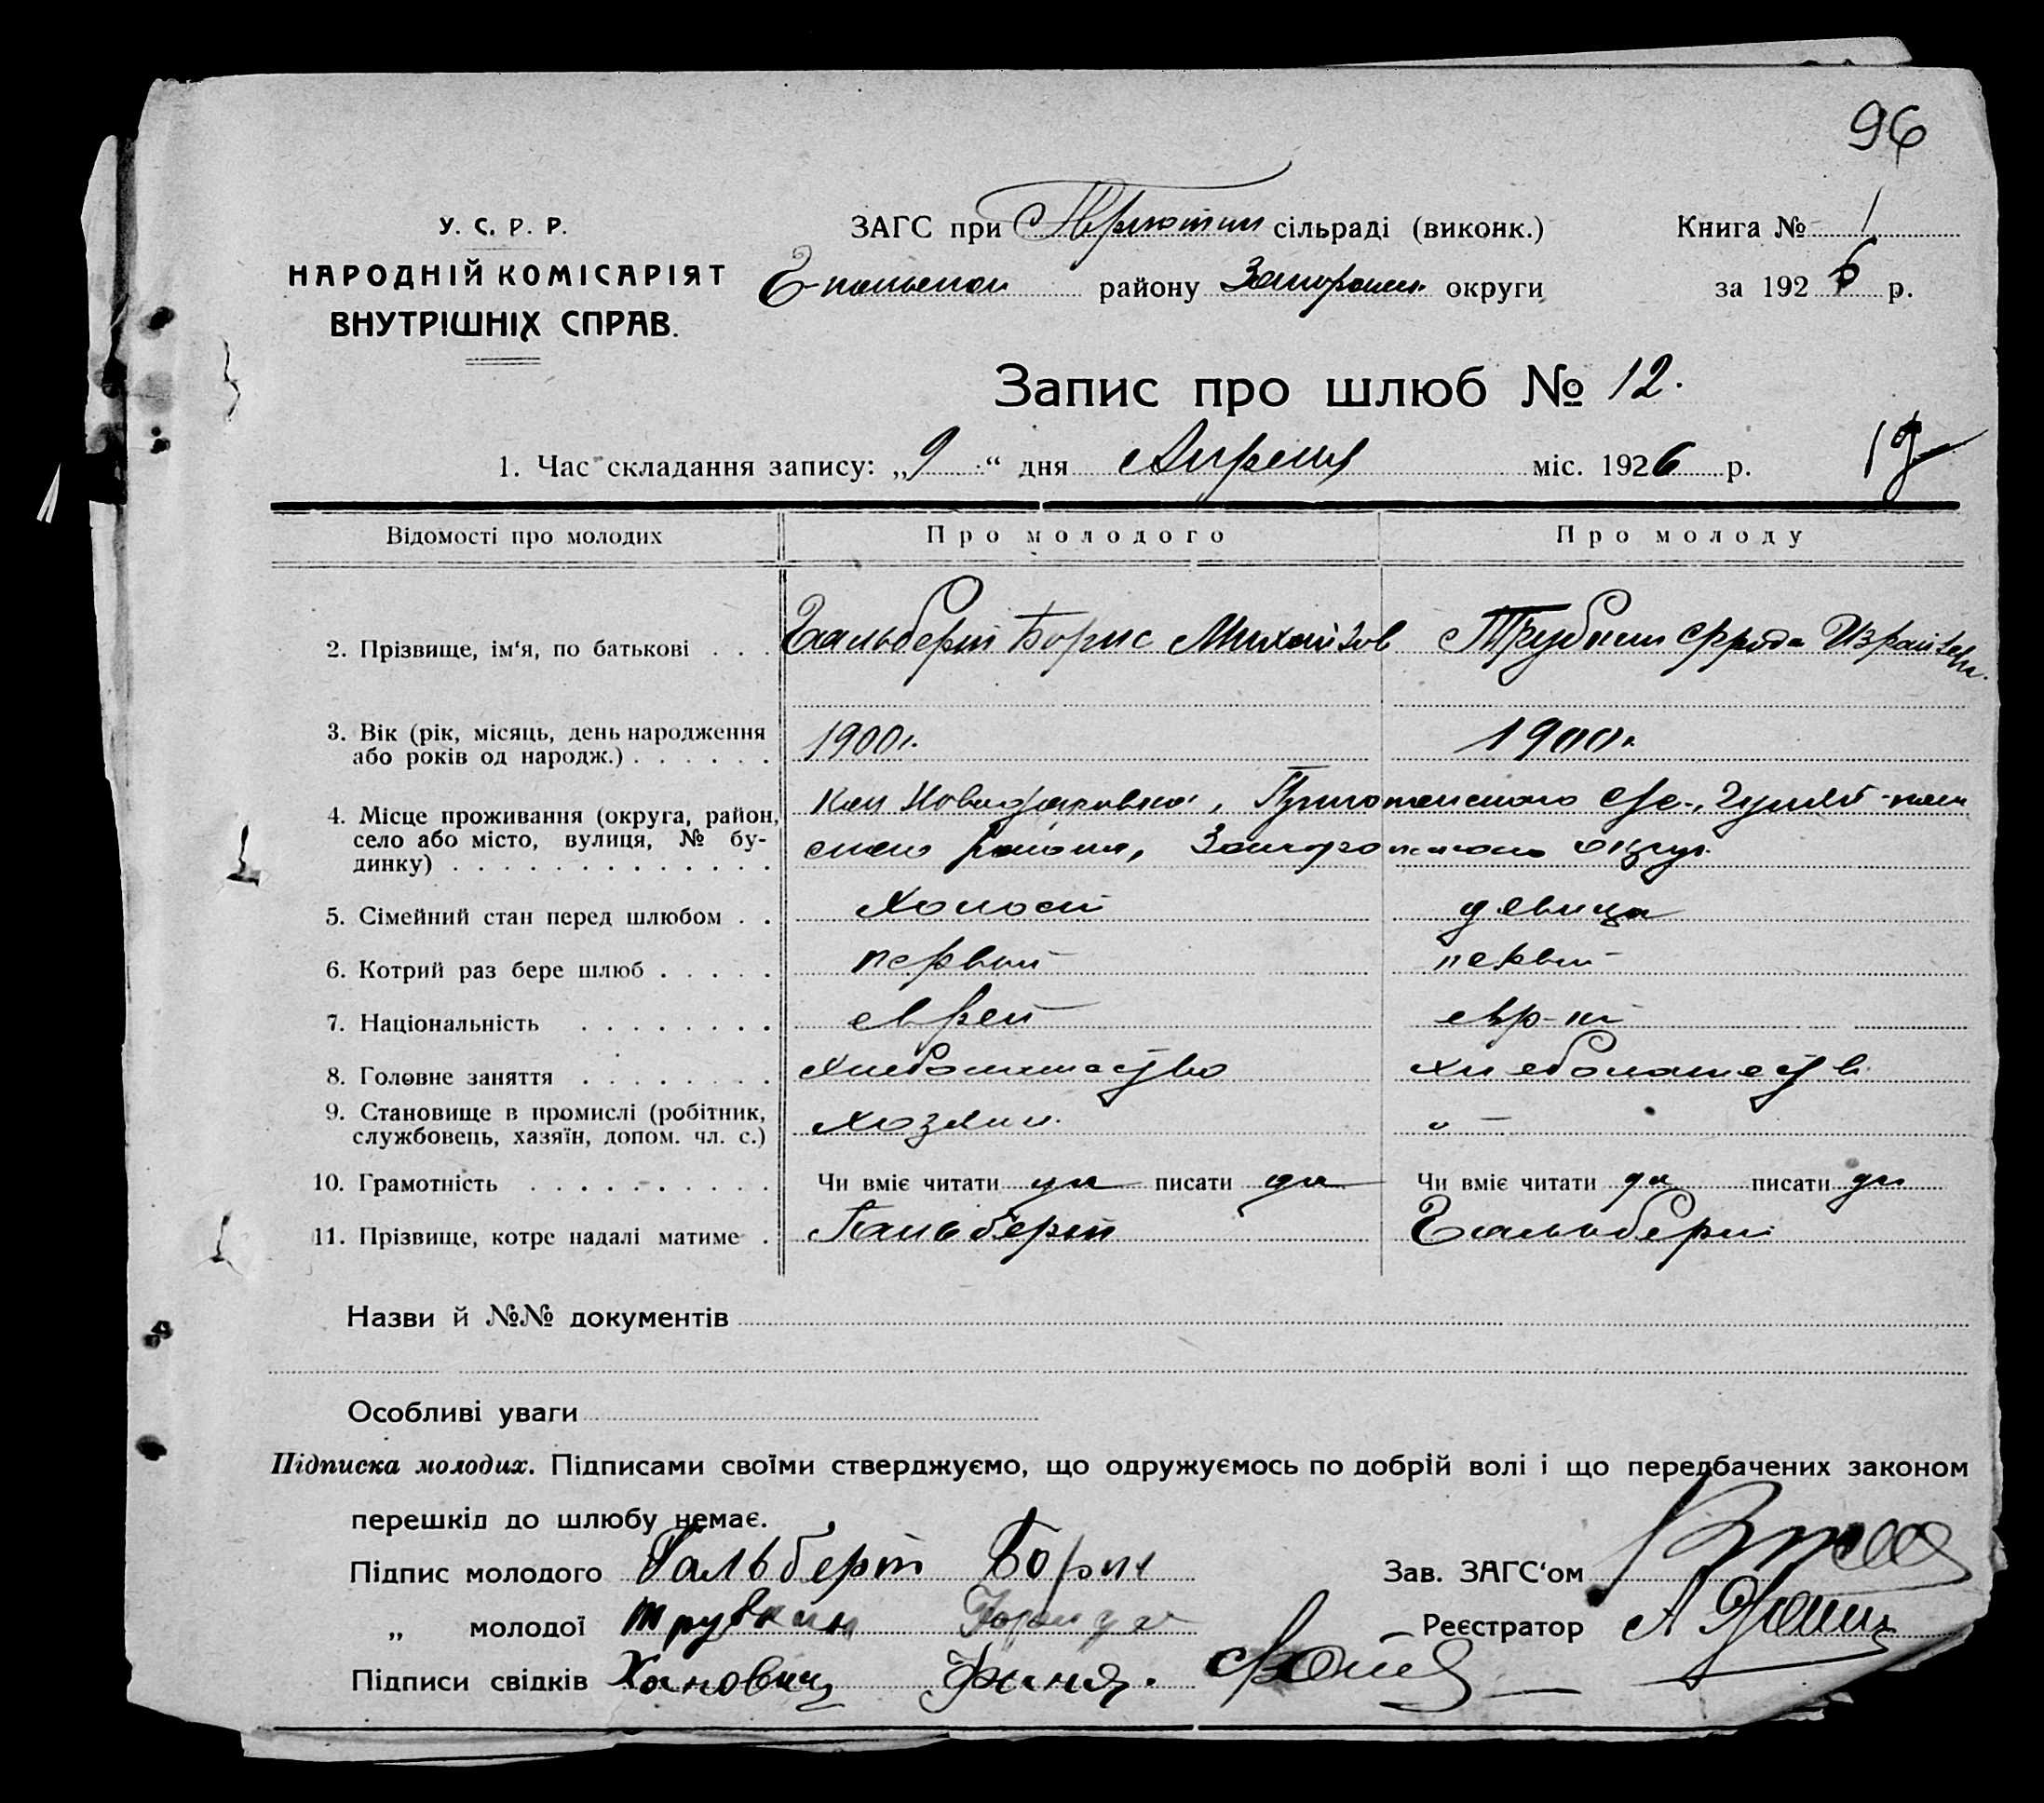 96
У. С. Р. Р.
НАРОДНІЙ КОМІСАРІЯТ
ВНУТРІШНІХ СПРАВ.
ЗАГС при сільраді (виконк.)
району округи
Книга № 1
за 1926 р.
Запис про шлюб № 12.
1. Час складання запису: „9“ дня Апреля міс. 1926 р.
Відомості про молодих Про молодого Про молоду
2. Прізвище, ім‘я, по батькові . . . Гальберт Борис Михайлов Трубкин Фрида Израилев
3. Вік (рік, місяць, день народження
або років од народж.) . . . . . . 1900г. 1900г.
4. Місце проживання (округа, район,
село або місто, вулиця, № бу-
динку) . . . . . . . . . . . . .
5. Сімейний стан перед шлюбом . . холост девица
6. Котрий раз бере шлюб . . . . . первый первый
7. Національність . . . . . . . . еврей евр-ка
8. Головне заняття . . . . . . . . хлебопашество хлебопашеств
9. Становище в промислі (робітник,
службовець, хазяїн, допом. чл. с.) хозяин. „ —
10. Грамотність . . . . . . . . . . Чи вміє читати да писати да Чи вміє читати да писати да
11. Прізвище, котре надалі матиме . Гальберт Гальберт
Назви й №№ документів
Особливі уваги
Підписка молодих. Підписами своїми стверджуємо, що одружуємось по добрій волі і що передбачених законом
перешкід до шлюбу немає.
Підпис молодого Гальберт Борис
Зав. ЗАГС‘ом
„ молодої Трубкин
Реєстратор
Підписи свідків Ханович